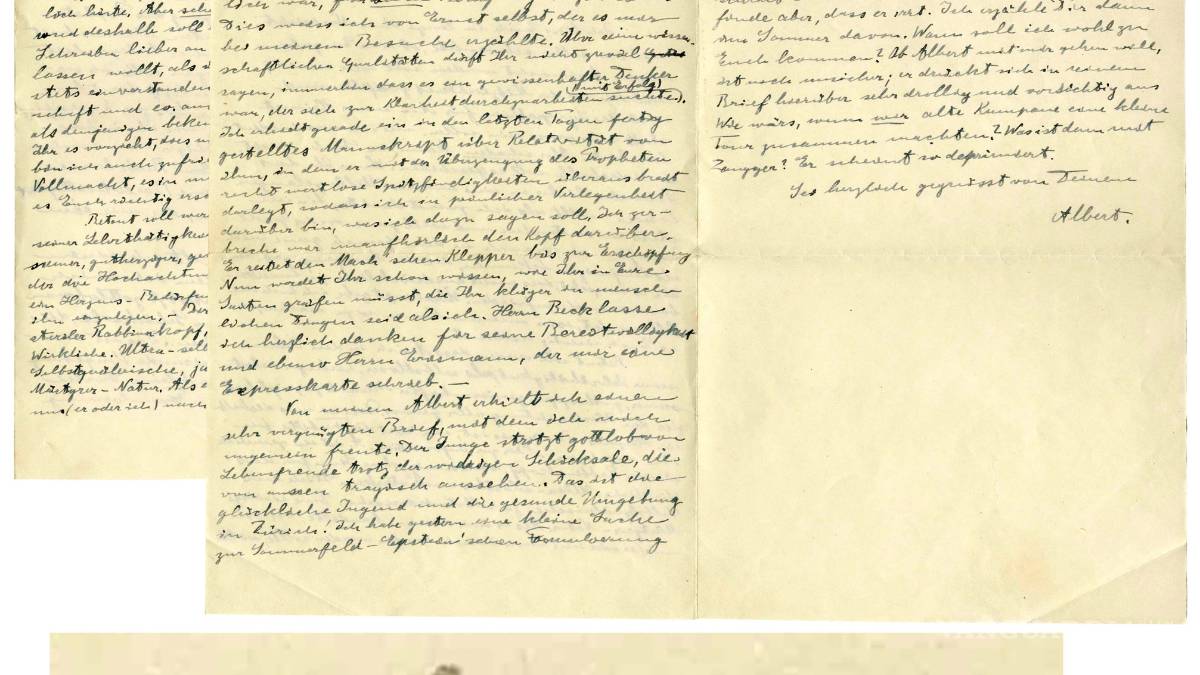 stets einverstanden
schaft und so. am
Ihr es vorzieht, dass
bin ich auch zufrie
Vollmacht, es in
es Euch richtig ersc
Retout soll wor
seiner Lehrthätigkei
der die Hochachtun
ein Herzens-Bedürfn
ihm
Rabbinerkopf,
Wirkliche. Ultra-sel
Selbstquälerische, ja
Märtyrer-Natur. Als
uns (er oder ich) nach
Dies weiss ich von Ernst selbst, der es mir
bei meinem Besuche erzählte. Über seine wissen-
schaftlichen Qualitäten dürft Ihr nicht zuviel
sagen, immerhin dass es ein gewissenhafter Denker
(mit Erfolg)
war, der sich zur Klarheit durchzuarbeiten suchte.
Ich erhielt gerade ein in den letzten Tagen fertig
gestelltes Manuskript über Relativität von
ihm, in dem er mit der Überzeugung des Propheten
recht wertlose Spitzfindigkeiten überaus breit
darlegt, sodass ich in peinlicher Verlegenheit
darüber bin, was ich dazu sagen soll. Ich zer-
breche mir unaufhörlich den Kopf darüber.
Er reitet den Mach'schen Klepper bis zur Erschöpfung
Nun werdet Ihr schon wissen, wie Ihr in Eure
Saiten greifen müsst, die Ihr klüger in mensch-
lichen Dingen seid als ich. Herrn Beck lasse
ich herzlich danken für seine Bereitwilligkeit
und ebenso Herrn Erismann, der mir eine
Expresskarte schrieb. —
Von meinem Albert erhielt ich einen
sehr vergnügten Brief, mit dem ich mich
ungemein freute. Der Junge strotzt gottlob von
Lebensfreude trotz der widrigen Schicksale, die
von aussen tragisch aussehen. Das ist die
glückliche Jugend und die gesunde Umgebung
in Zürich! Ich habe gestern eine kleine Sache
zur Sommerfeld-Epstein'schen Formulierung
finde aber, dass er irrt. Ich erzähle Dir dann
im Sommer davon. Wann soll ich wohl zu
Euch kommen? Ob Albert mit mir gehen will,
ist noch unsicher; er drückt sich in seinem
Brief hierüber sehr drollig und vorsichtig aus
Wie wärs, wenn wir alte Kumpane eine kleine
Tour zusammen machten? Was ist denn mit
Zangger? Er scheint so deprimiert.
Sei herzlich gegrüsst von Deinem
Albert.